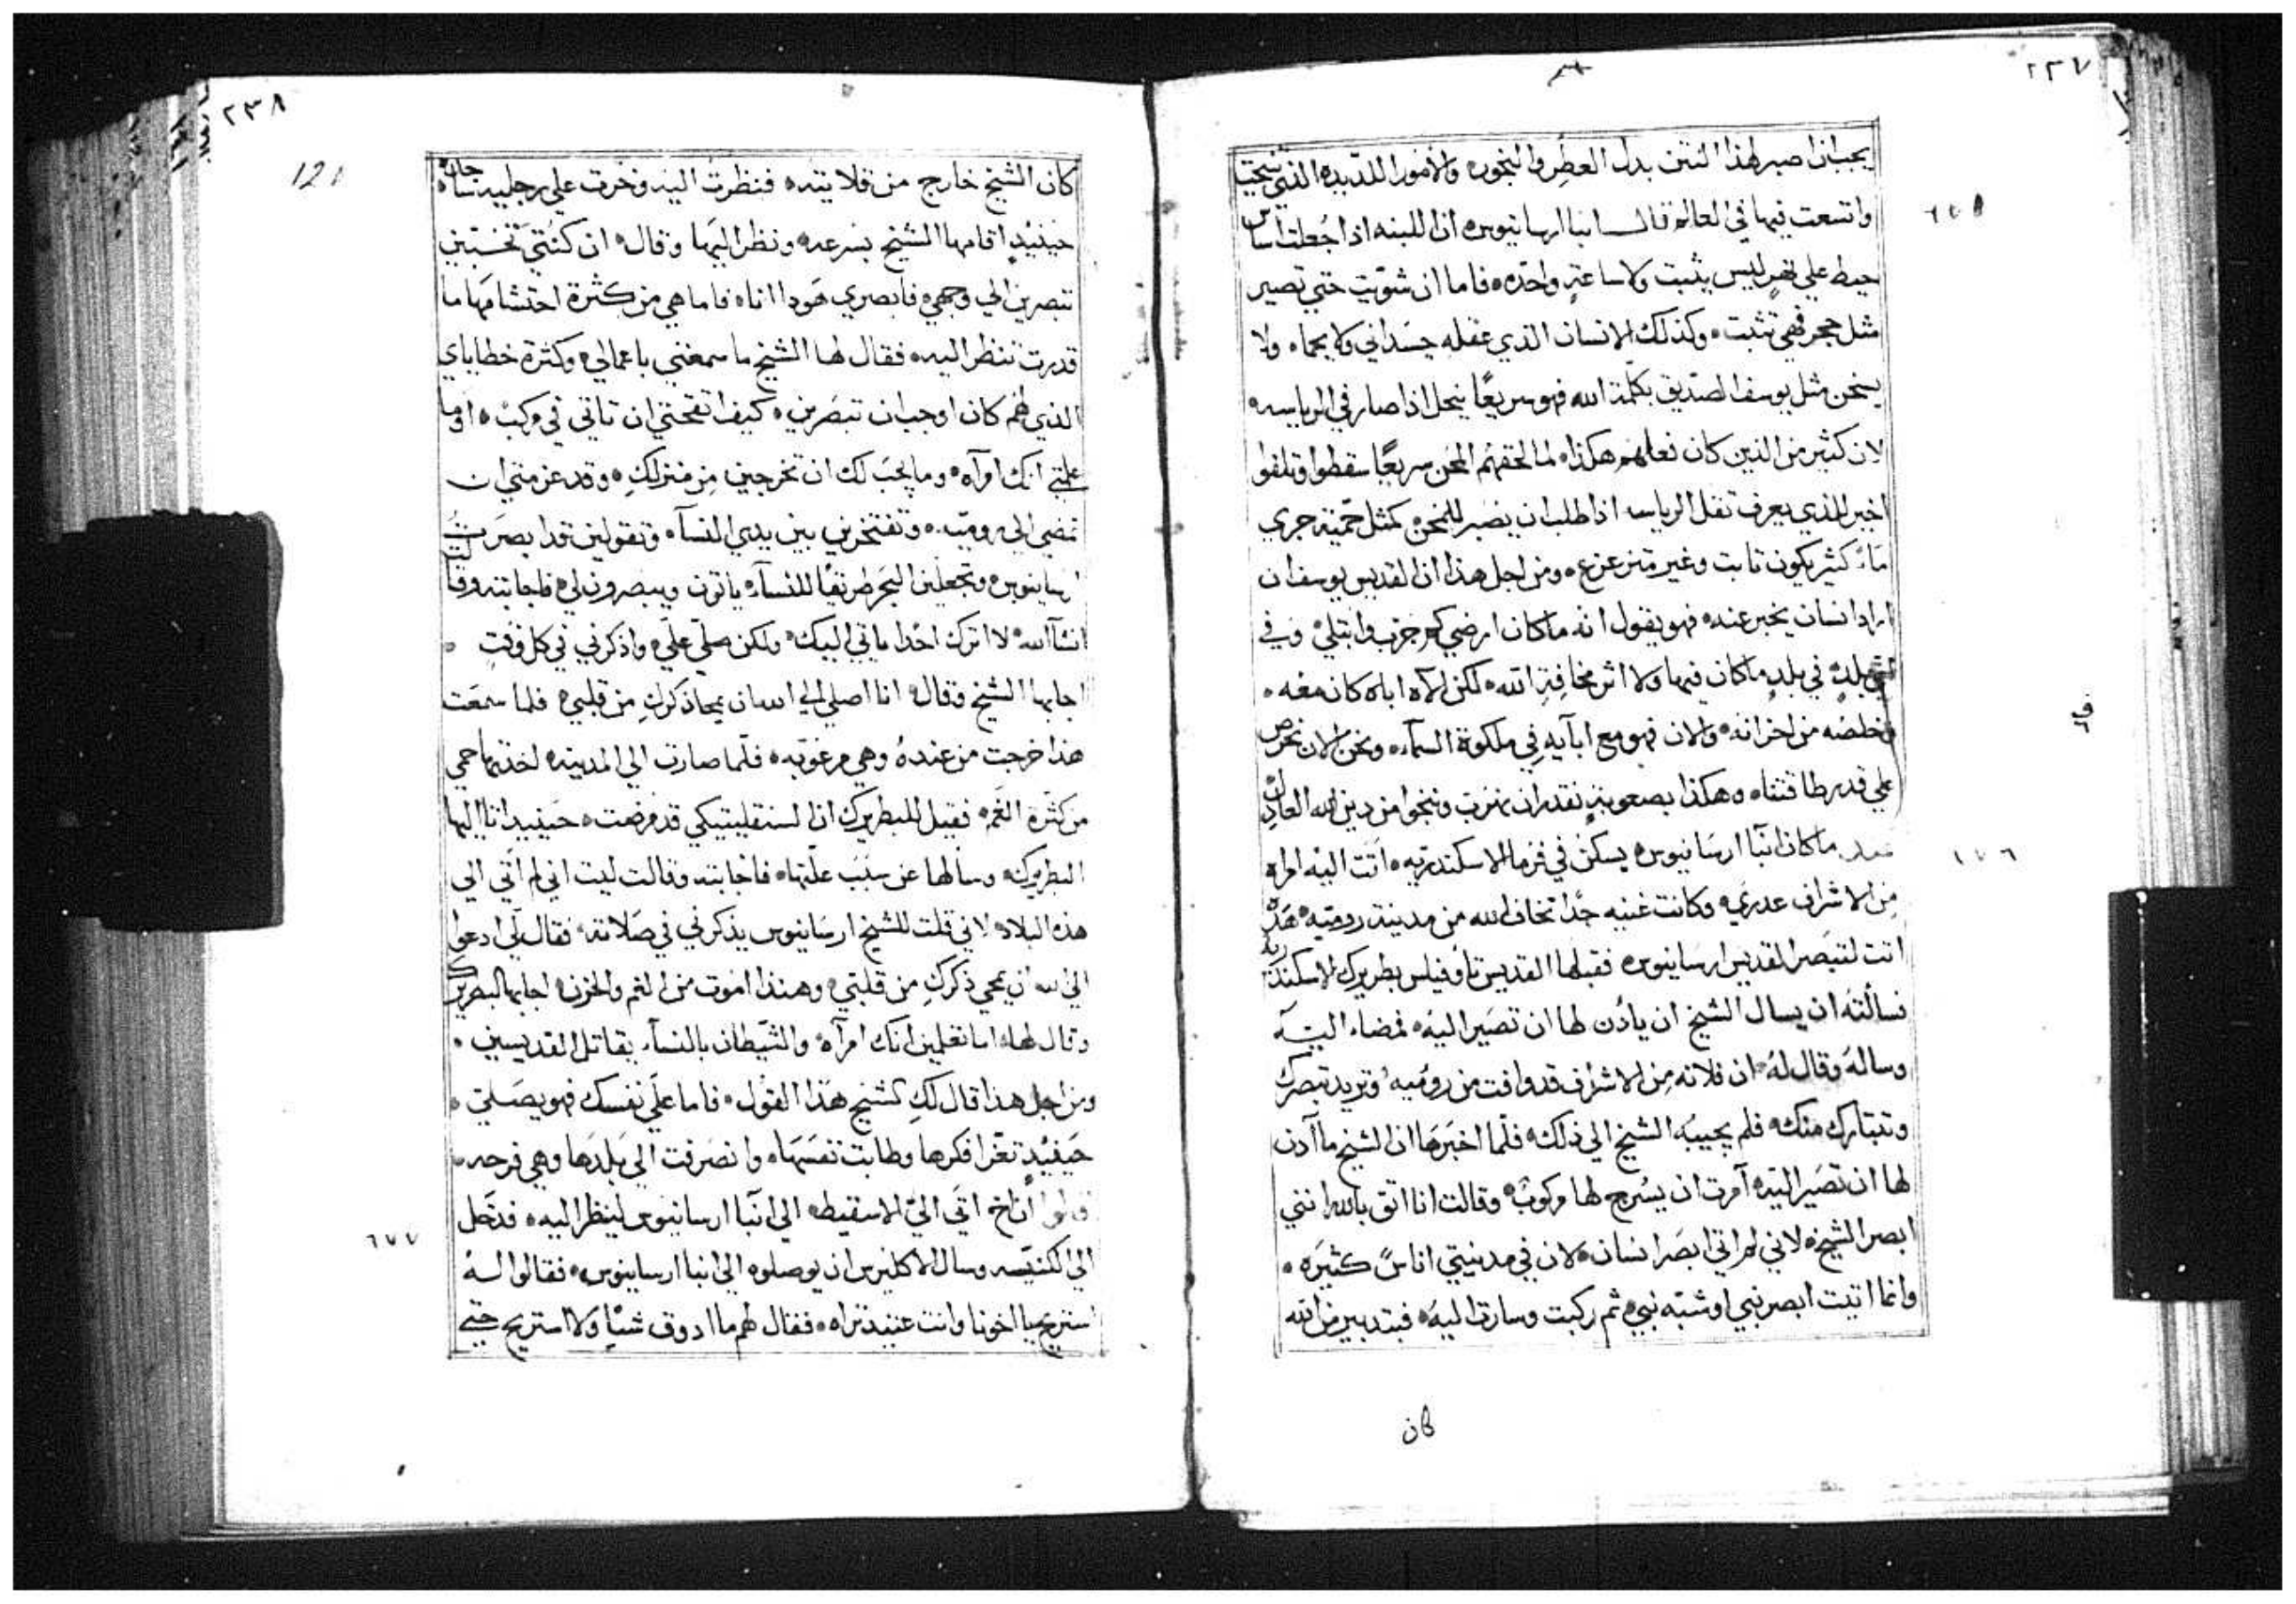 ٢٣٧
يجب ان اصبر لهذا النتن بدل العطر والبخور والامور اللذيذه الذي تنجت
واتسعت فيها في العالم قال انبا ارسانيوس ان اللبنه اذا جُعلت اساس
٦٧٥
حيط علي نهرٍ ليس يثبت ولا ساعةٍ واحده فاما ان شويت حتي تصير
مثل حجر فهي تثبت وكذلك الانسان الذي عقله جسداني ولا يحماه ولا
يمتحن مثل يوسف الصديق بكلمة الله فهو سريعًا ينحل اذا صار في الرياسه
لان كثير من الذين كان فعلهم هكذا لما لحقهم المحن سريعًا سقطوا وتلفوا
اخير للذي يعرف ثقل الرياسه اذا طلب ان يصبر للمحن كمثل حمية جري
مآء كثير يكون ثابت وغير متزعزع ومن اجل هذا ان القديس يوسف ان
اراد انسان يخبر عنده فهو يقول انه ما كان ارضي كم جرب وابتلي وفي
اي بلد في بلدٍ ما كان فيها ولا اثر مخافة الله لكن الاه اباه كان معه
وخلصه من احزانه والان فهو مع ابآيه في ملكوة السمآء ونحن الان نحرص
علي قدر طاقتنا وهكذا بصعوبةٍ نقدر ان نهرب وننجوا من دين الله العادل
ما كان انبا ارسانيوس يسكن في فرما الاسكندريه اتت اليه امراه
٦٧٦
من الاشراف عدري وكانت غنيه جدًا تخاف الله من مدينة روميه هذه
اتت لتبصر القديس ارسانيوس فقبلها القديس تاوفيلس بطريرك الاسكندريه
فسالته ان يسال الشيخ ان ياذن لها ان تصير اليه فمضا اليه
وساله وقال له ان فلانه من الاشراف قد وافت من روميه وتريد تبصرك
وتتبارك منك فلم يجيبه الشيخ الي ذلك فلما اخبرها ان الشيخ ما آذن
لها ان تصير اليه آمرت ان يسرج لها مركوب وقالت انا اثق بالله انني
ابصر الشيخ لاني لم اتي ابصر انسان لان في مدينتي اناسً كثيره
وانما اتيت ابصر نبي او شبه نبي ثم ركبت وسارت اليه فبتدبير من الله
كان
٢٣٨
121
كان الشيخ خارج من قلايته فنظرت اليه وخرت علي رجليه ساجده
حينيدٍ اقامها الشيخ بسرعه ونظر اليها وقال ان كنتي تحبين
تبصرين الي وجهي فابصري هودا اناه فاما هي من كثرة احتشامها ما
قدرت تنظر اليه فقال لها الشيخ ما سمعتي باعمالي وكثرة خطاياي
الذي لهم كان اوجب ان تبصرين كيف اتقحتي ان تاتي في مركب او ما
علمتي انك امرآه وما يجب لك ان تخرجين من منزلكِ وقد عزمتي ان
تمضي الي روميه وتفتخرين بين يدي النسآء وتقولين قد ابصرت
ارسانيوس وتجعلين البحر طريقًا للنسآء ياتون ويبصروني فاجابته وقالت
انشآالله لا اترك احدا ياتي اليك ولكن صلي علي واذكرني في كل وقتٍ
اجابها الشيخ وقال انا اصلي الي الله ان يمحا ذكركِ من قلبي فلما سمعت
هذا خرجت من عنده وهي مرعوبه فلما صارت الي المدينه اخذتها حمي
من كثرة الغم فقيل للبطريرك ان السنقليتيكي قد مرضت حينيد اتا اليها
البطريرك وسالها عن سبب علتها فاجابته وقالت ليت اني لم اتي الي
هذه البلاد لاني قلت للشيخ ارسانيوس يذكرني في صلاته فقال لي ادعوا
الي الله ان يمحي ذكركِ من قلبي وهندا اموت من الغم والحزن اجابها البطريرك
وقال لها اما تعلمين انك امرآه والشيطان بالنسآء يقاتل القديسين
ومن اجل هذا قال لكِ الشيخ هذا القول فاما علي نفسك فهو يصلي
حينيدٍ تعزا فكرها وطابت نفسها وانصرفت الي بلدها وهي فرحه
قالوا ان اخ اتي الي الاسقيط الي انبا ارسانيوس لينظر اليه فدخل
٦٧٧
الي الكنيسه وسال الاكليرس ان يوصلوه الي انبا ارسانيوس فقالوا له
استريح يا اخونا وانت عنيد تراه فقال لهم ما ادوق شياٍ ولا استريح حتي